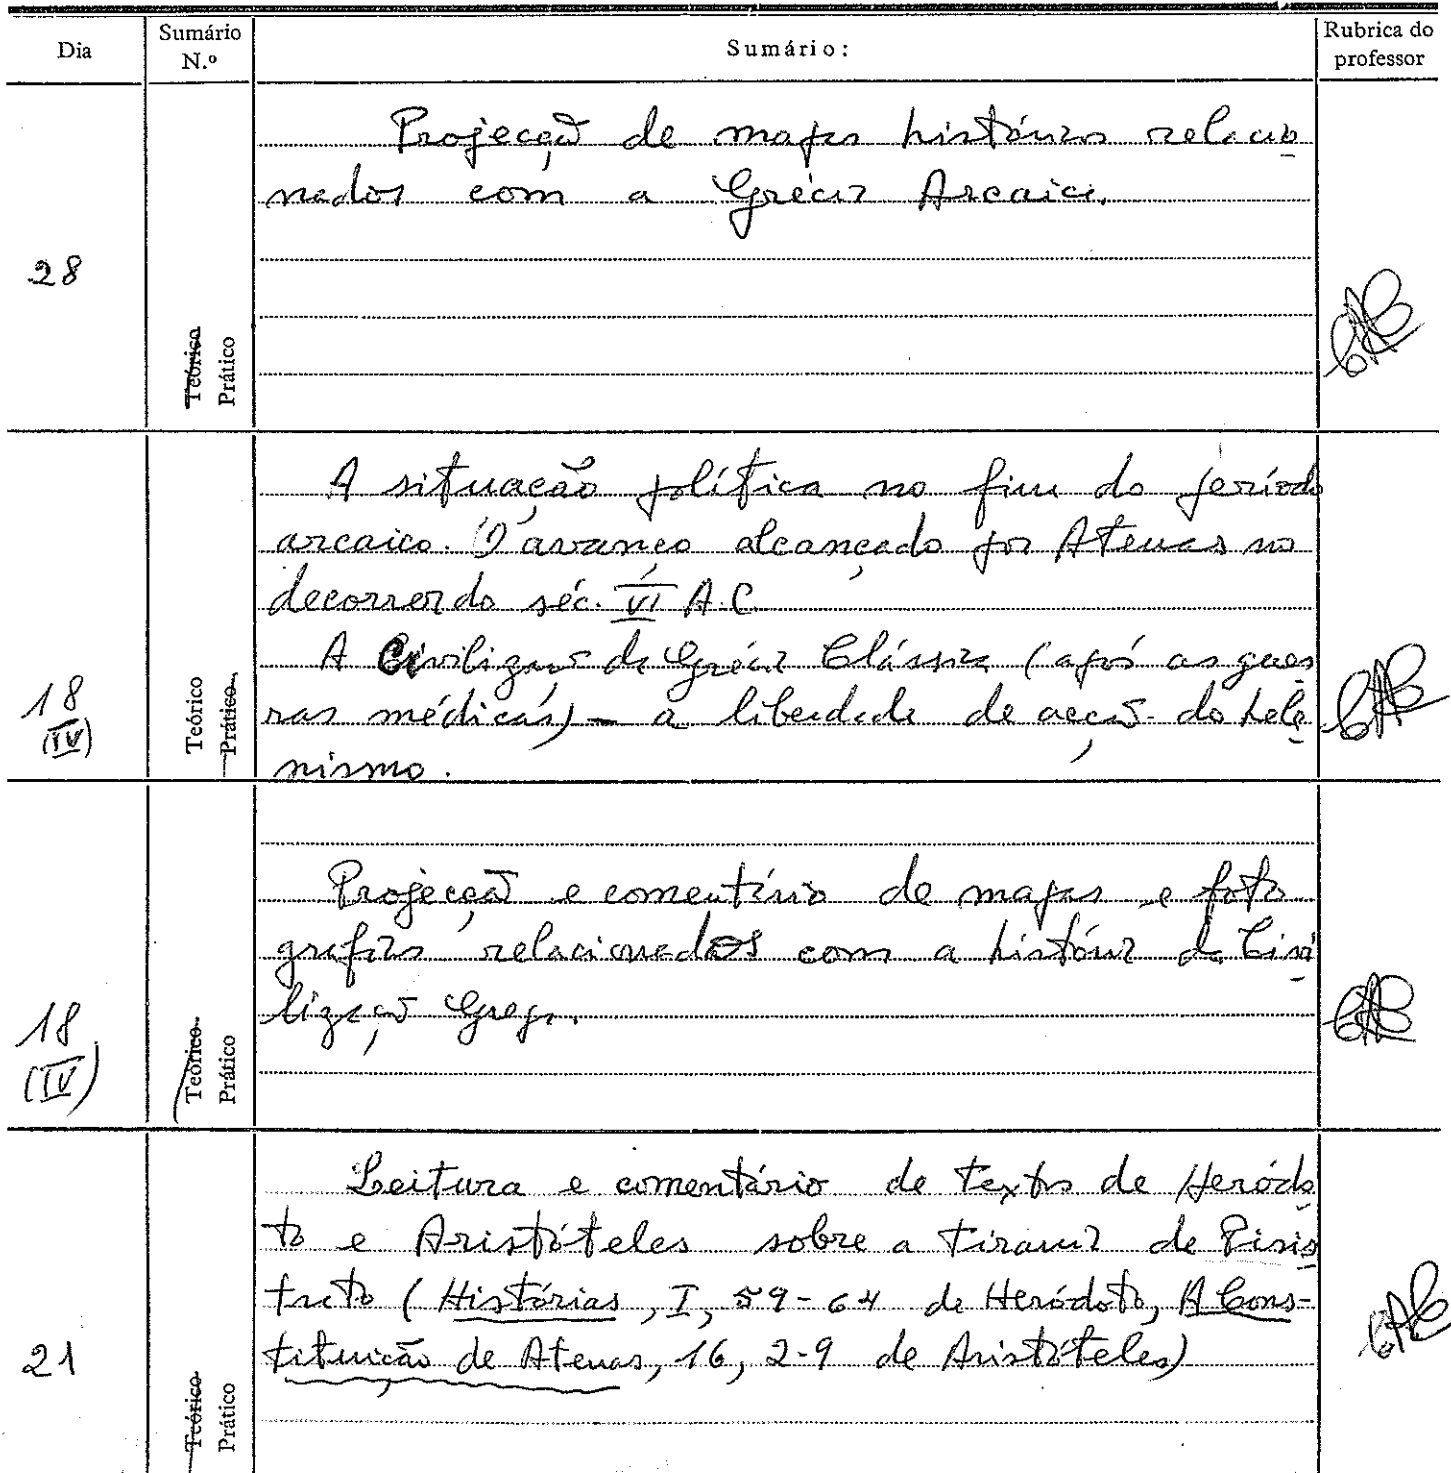 Dia
Sumário N.º
Sumário:
Rubrica do professor
28
Teórico
Prático
Projecção de mapas históricos relacio
nados com a Grécia Arcaica.
18
(IV)
Teórico
Prático
A situação política no fim do período
arcaico. O avanço alcançado por Atenas no
decorrer do séc. VI A.C.
A Civilização da Grécia Clássica (após as guer
ras médicas) – a liberdade de acção do hele
nismo.
18
(IV)
Teórico
Prático
Projecção e comentário de mapas e foto
grafias relacionados com a história da Civi
lização Grega.
21
Teórico
Prático
Leitura e comentário de textos de Heródo
to e Aristóteles sobre a tirania de Pisis
trato (Histórias, I, 59-64 de Heródoto, A Cons-
tituição de Atenas, 16, 2-9 de Aristóteles)